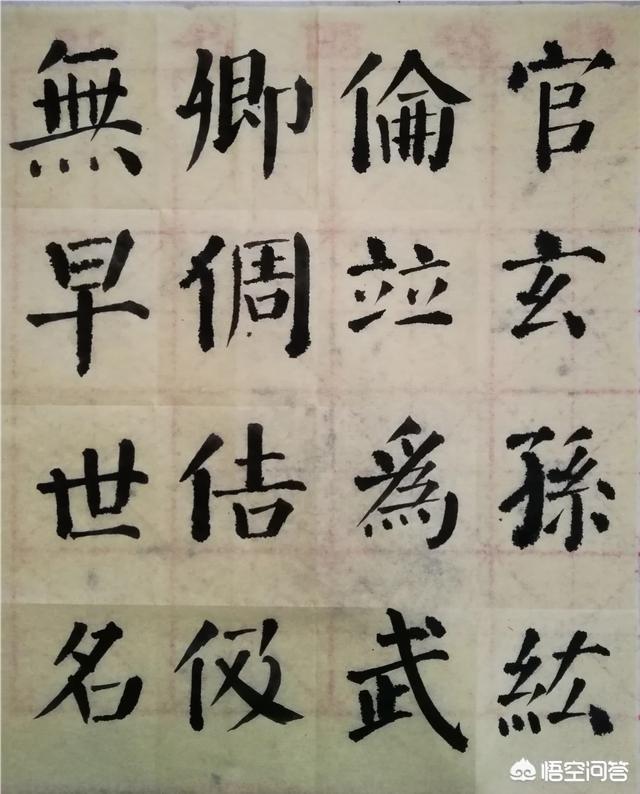 無早世名
卿倜佶伋
倫竝爲武
官玄孫紘
悟空问答